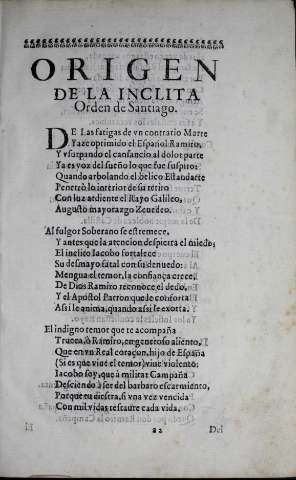 ORIGEN
DE LA INCLITA
Orden de Santiago.
DE Las fatigas de vn contrario Marte
Yaze oprimido el Español Ramiro,
Y vsurpando el cansancio al dolor parte
Ya es voz del sueño lo que fue suspiro:
Quando arbolando el belico Estandarte
Penetrò lo interior de su retiro
Con luz ardiente el Rayo Galileo,
Augusto mayorazgo Zebedeo.
Al fulgor Soberano se estremece,
Y antes que la atencion despierta el miedo;
El inclito Iacobo fortalece
Su desmayo fatal con su denuedo:
Mengua el temor, la confiança crece,
De Dios Ramiro reconoce el dedo,
Y el Apostol Patron que le conforta
Assi le anima, quando assi le exorta.
El indigno temor que te acompaña
Trueca, ò Ramiro, en generoso aliento,
Que en vn Real coraçon, hijo de España
(Si es que viue el temor) viue violento:
Iacobo soy, que à militar Campaña
Desciendo à ser del barbaro escarmiento,
Porque tu diestra, si vna vez vencida
Con mil vidas restaure cada vida.
a2
Del